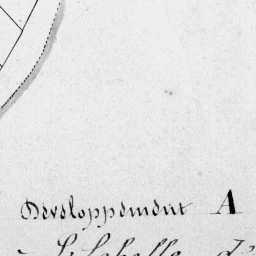 Développement A
L'Echelle d'